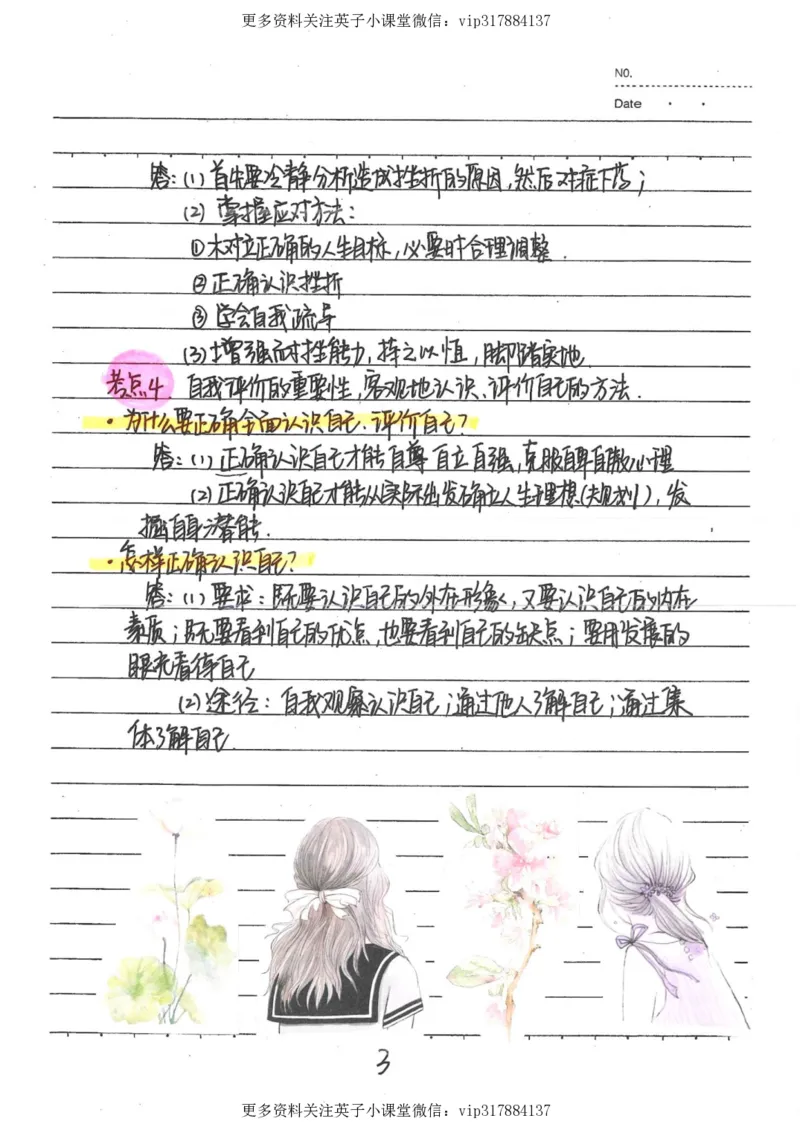 更多资料关注英子小课堂微信：vip317884137
NO.
Date
答：(1) 首先要冷静分析造成挫折的原因，然后对症下药；
(2) 掌握应对方法：
①树立正确的人生目标，必要时合理调整.
②正确认识挫折
③学会自我疏导
(3) 增强耐挫能力，持之以恒，脚踏实地.
考点4. 自我评价的重要性，客观地认识、评价自己的方法.
·为什么要正确全面认识自己、评价自己？
答：(1) 正确认识自己才能自尊自立自强，克服自卑自傲心理
(2) 正确认识自己才能从实际出发确立人生理想（规划），发
掘自身潜能.
·怎样正确认识自己？
答：(1) 要求：既要认识自己的外在形象，又要认识自己的内在
素质；既要看到自己的优点，也要看到自己的缺点；要用发展的
眼光看待自己
(2) 途径：自我观察认识自己；通过他人了解自己；通过集
体了解自己.
3
更多资料关注英子小课堂微信：vip317884137